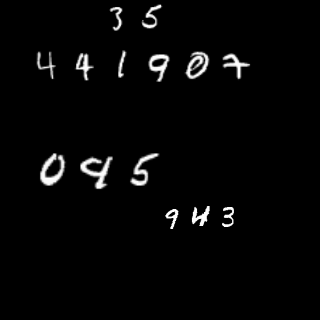 35
441907
095
943